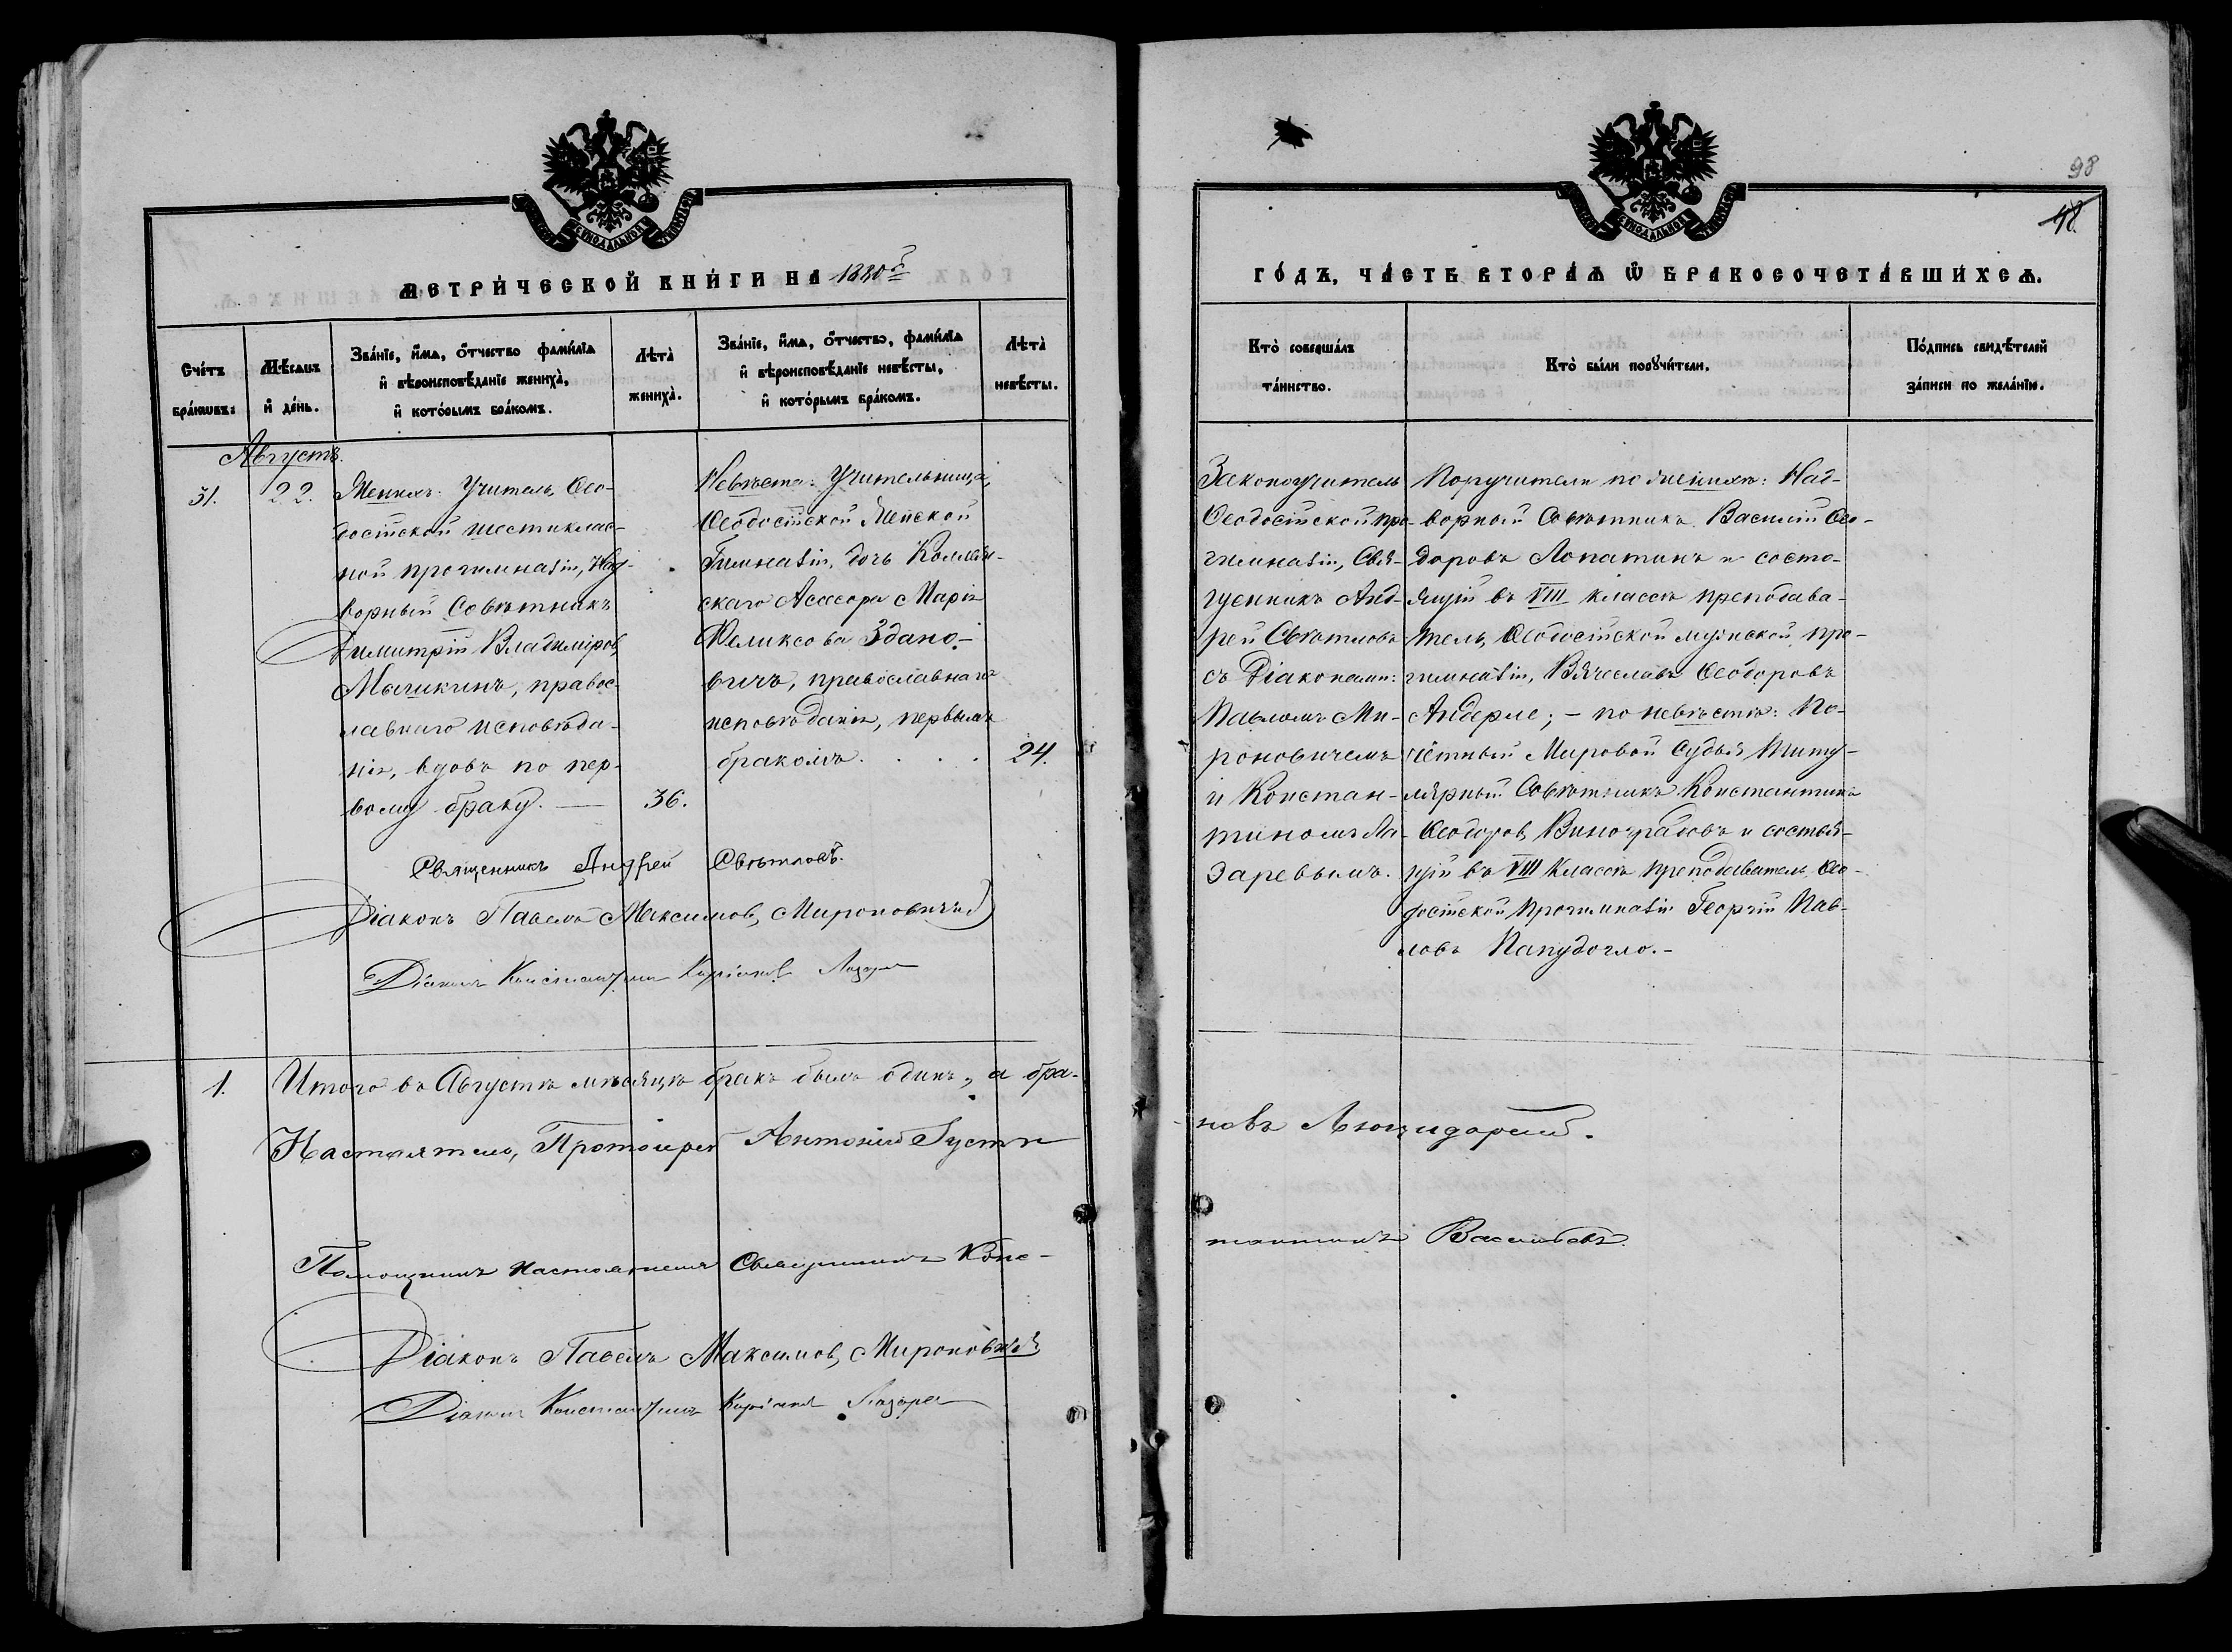 98
48.
МЕТРИ́ЧЕСКОЙ КНИ́ГИ НА 1880й
ГО́ДЪ, ЧА́СТЬ ВТОРА́Ѧ Ѿ БРАКОСОЧЕТА́ВШИХСѦ.
Сче́тъ бра́кωвъ:
Мѣ́сѧцъ и́ де́нь.
Зва́нїе, и́мѧ, о́тчество фами́лїѧ
и́ вѣроисповѣ́данїе жениха̀,
и́ кото́рымъ бра́комъ.
Лѣта̀ жениха̀.
Зва́нїе, и́мѧ, о́тчество, фами́лїѧ
и́ вѣроисповѣ́данїе невѣ́сты,
и́ кото́рымъ бра́комъ.
Лѣта̀ невѣ́сты.
Кто̀ соверша́лъ та́инство.
Кто̀ бы́ли порꙋчи́тели.
По́дпись свидѣ́телей за́писи по жела́нїю.
Августъ.
31.
22.
Женихъ: Учитель Ѳео-
досійской шестиклас-
ной прогимназіи, Над-
ворный Совѣтникъ
Димитрій Владиміровъ
Мышкинъ, правос-
лавнаго исповѣда-
нія, вдовъ по пер-
вому браку. —
36.
Невѣста: Учительница
Ѳеодосійской Женской
Гимназіи, дочь Коллеж-
скаго Асесора Марія
Феликсова Здано-
вичъ, православнаго
исповѣданія, первымъ
бракомъ. . . . .
24.
Законоучитель
Ѳеодосійской про-
гимназіи, Свя-
щенникъ Анд-
рей Свѣтловъ
съ Діаконами:
Павломъ Ми-
роновичемъ
и Констан-
тиномъ Ла-
заревымъ.
Поручители по женихѣ: Над-
ворный Совѣтникъ Василій Ѳео-
доровъ Лопатинъ и состо-
ящій въ VIII классѣ преподава-
тель Ѳеодосійской мужской про-
гимназіи, Вячеславъ Ѳеодоровъ
Андерле; – по невѣстѣ: По-
чётный Мировой Судья Титу-
лярный Совѣтникъ Константинъ
Ѳеодоровъ Виноградовъ и состоя-
щій въ VIII классѣ преподаватель Ѳео-
досійской Прогимназіи Георгій Пав-
ловъ Папудогло.–
Священникъ Андрей Свѣтловъ.
Діаконъ Павелъ Максимовъ Мироновичъ
Діаконъ Константинъ Лазаревъ
1.
Итого въ Августѣ мѣсяцѣ бракъ былъ одинъ, а бра-
ковъ
Настоятель, Протоіерей Антоній
Помощникъ настоятеля Священникъ Конс-
тантинъ Васильевъ.
Діаконъ Павелъ Максимовъ Мироновичъ
Діаконъ Константинъ Лазаревъ